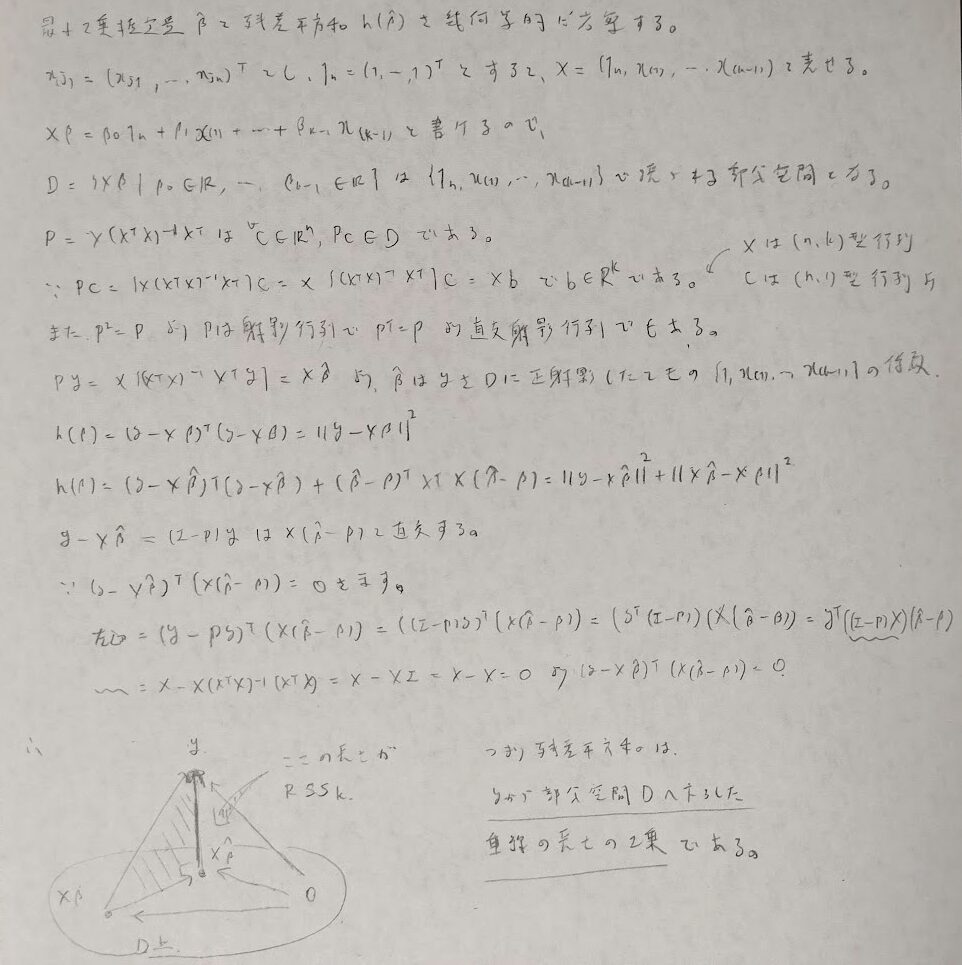 最小2乗推定量 β̂ と残差平方和 h(β̂) を幾何学的に考察する。
x(j) = (xj1, ‥, xjn)ᵀ とし、1n = (1, ‥, 1)ᵀ とすると、X = (1n, x(1), ‥, x(k-1)) と表せる。
Xβ = β0 1n + β1 x(1) + ‥ + βk-1 x(k-1) と書けるので、
D = {Xβ | β0 ∈ ℝ, ‥, βk-1 ∈ ℝ} は {1n, x(1), ‥, x(k-1)} で張られる部分空間となる。
P = X(XᵀX)⁻¹Xᵀ は ∀C ∈ ℝⁿ, PC ∈ D である。
∵ PC = {X(XᵀX)⁻¹Xᵀ}C = X {(XᵀX)⁻¹Xᵀ}C = Xb で b ∈ ℝᵏ である。
Xは (n, k) 型行列
Cは (n, 1) 型行列より
また P² = P より Pは射影行列で Pᵀ = P より直交射影行列でもある。
Py = X{(XᵀX)⁻¹Xᵀy} = Xβ̂ より、β̂ は y を D に正射影したときの {1, x(1), ‥, x(k-1)} の係数.
h(β) = (y - Xβ)ᵀ(y - Xβ) = ||y - Xβ||²
h(β) = (y - Xβ̂)ᵀ(y - Xβ̂) + (β̂ - β)ᵀXᵀX(β̂ - β) = ||y - Xβ̂||² + ||Xβ̂ - Xβ||²
y - Xβ̂ = (I - P)y は X(β̂ - β) と直交する。
∵ (y - Xβ̂)ᵀ(X(β̂ - β)) = 0 を示す。
左辺 = (y - Py)ᵀ(X(β̂ - β)) = ((I - P)y)ᵀ(X(β̂ - β)) = (yᵀ(I - P))(X(β̂ - β)) = yᵀ((I - P)X)(β̂ - β)
〰 = X - X(XᵀX)⁻¹(XᵀX) = X - XI = X - X = 0 より (y - Xβ̂)ᵀ(X(β̂ - β)) = 0
∴
y
ここの長さが
RSSk.
Xβ̂
Xβ
0
D上
つまり残差平方和は、
yから部分空間Dへ下ろした
垂線の長さの2乗である。